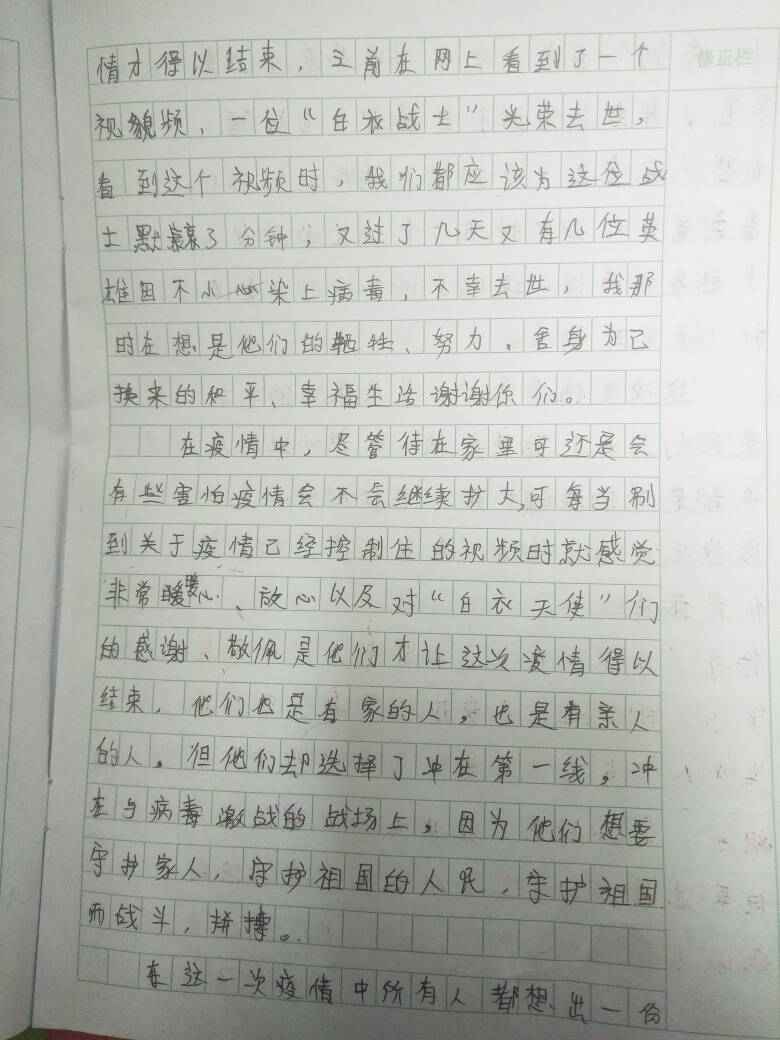 修正栏
情才得以结束，之前在网上看到了一个
视频，一位“白衣战士”光荣去世，
看到这个视频时，我们都应该为这位战
士默哀了分钟，又过了几天又有几位英
雄因不小心染上病毒，不幸去世，我那
时在想是他们的牺牲、努力、舍身为己
换来的和平、幸福生活谢谢你们。
在疫情中，尽管待在家里可还是会
有些害怕疫情会不会继续扩大，可每当刷
到关于疫情已经控制住的视频时就感觉
非常暖心、放心以及对“白衣天使”们
的感谢、敬佩是他们才让这次疫情得以
结束，他们也是有家的人，也是有亲人
的人，但他们却选择了冲在第一线，冲
在与病毒激战的战场上，因为他们想要
守护家人，守护祖国的人民，守护祖国
而战斗，拼搏。
在这一次疫情中所有人都想出一份